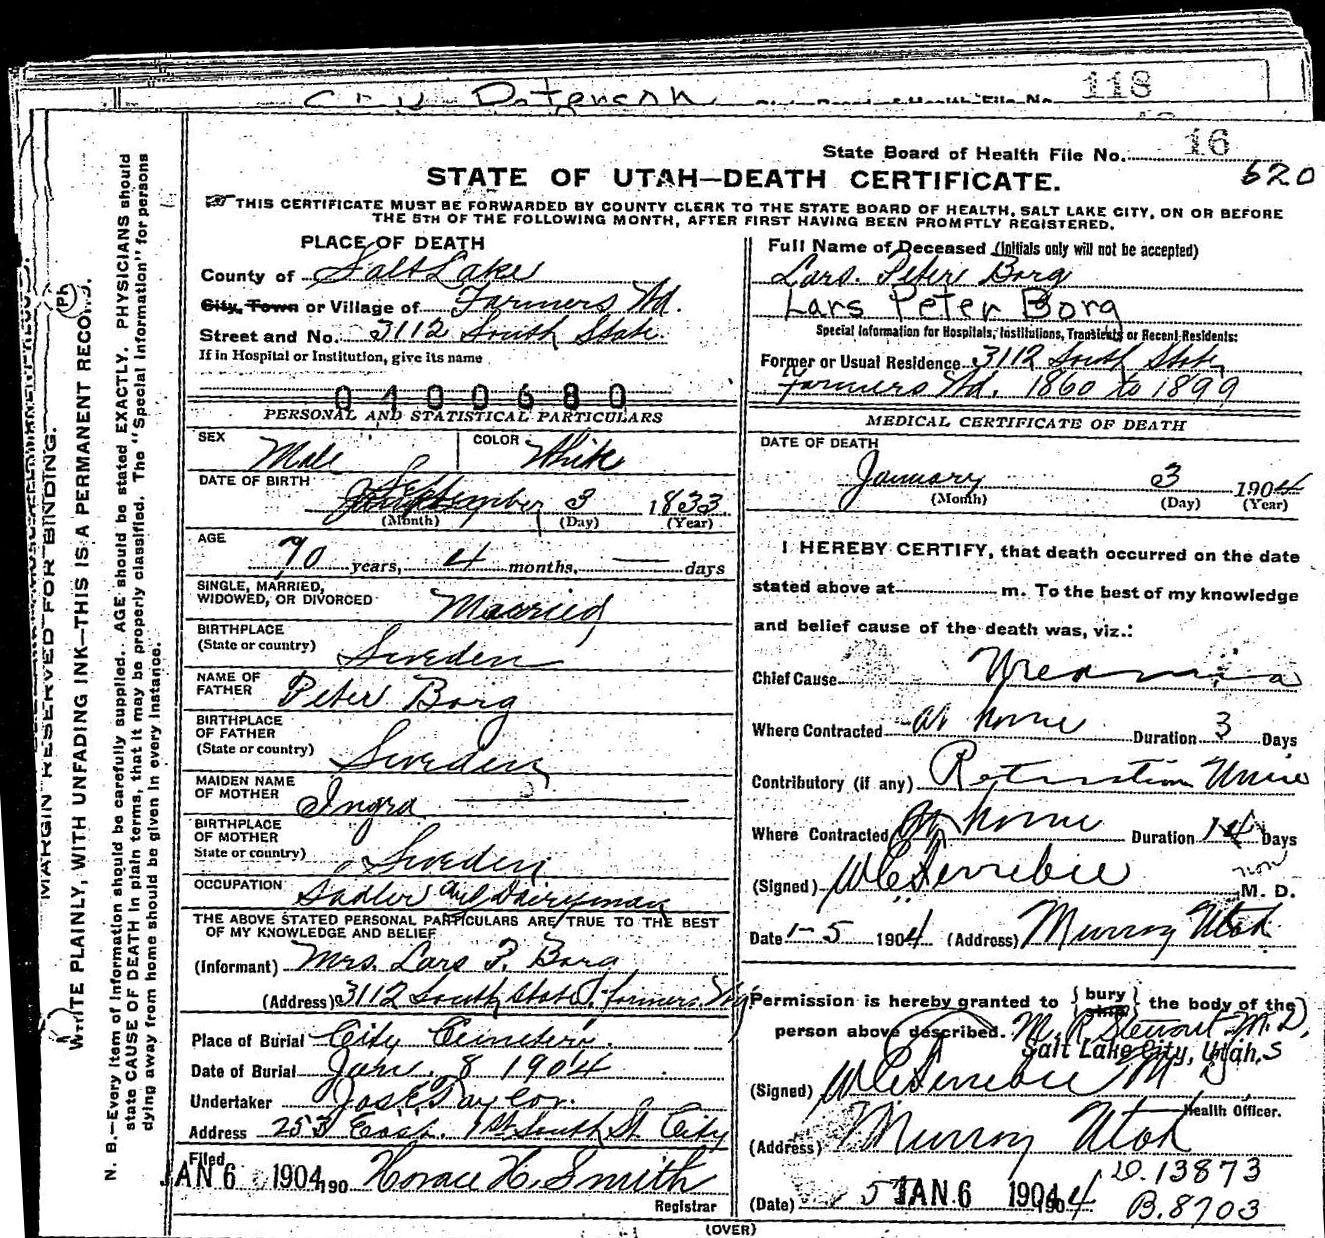 118
State Board of Health File No. 16
620
STATE OF UTAH—DEATH CERTIFICATE.
THIS CERTIFICATE MUST BE FORWARDED BY COUNTY CLERK TO THE STATE BOARD OF HEALTH, SALT LAKE CITY, ON OR BEFORE
THE 5TH OF THE FOLLOWING MONTH, AFTER FIRST HAVING BEEN PROMPTLY REGISTERED.
MARGIN RESERVED FOR BINDING.
WRITE PLAINLY, WITH UNFADING INK—THIS IS A PERMANENT RECORD.
N. B.—Every item of information should be carefully supplied. AGE should be stated EXACTLY. PHYSICIANS should
state CAUSE OF DEATH in plain terms, that it may be properly classified. The "Special Information" for persons
dying away from home should be given in every instance.
PLACE OF DEATH
County of Salt Lake
City, Town or Village of Farmers Wd.
Street and No. 3112 South State.
If in Hospital or Institution, give its name
0400680
PERSONAL AND STATISTICAL PARTICULARS
SEX Male COLOR White
DATE OF BIRTH September 3 1833
(Month) (Day) (Year)
AGE 70 years, 4 months, — days
SINGLE, MARRIED,
WIDOWED, OR DIVORCED Married
BIRTHPLACE
(State or country) Sweden
NAME OF
FATHER Peter Borg
BIRTHPLACE
OF FATHER
(State or country) Sweden
MAIDEN NAME
OF MOTHER Ingra
BIRTHPLACE
OF MOTHER
State or country) Sweden
OCCUPATION Sadler and Dairyman
THE ABOVE STATED PERSONAL PARTICULARS ARE TRUE TO THE BEST
OF MY KNOWLEDGE AND BELIEF
(Informant) Mrs. Lars P. Borg
(Address) 3112 South State St. farmers Wd
Place of Burial City Cemetery.
Date of Burial Jan. 8 1904
Undertaker Jos. E. Taylor.
Address 253 East. 1st South St. City
Filed
JAN 6 1904 190 Horace H. Smith
Registrar
Full Name of Deceased (Initials only will not be accepted)
Lars. Peter Borg
Lars Peter Borg
Special Information for Hospitals, Institutions, Transients or Recent Residents:
Former or Usual Residence 3112 South State,
Farmers Wd. 1860 to 1899
MEDICAL CERTIFICATE OF DEATH
DATE OF DEATH
January 3 1904
(Month) (Day) (Year)
I HEREBY CERTIFY, that death occurred on the date
stated above at m. To the best of my knowledge
and belief cause of the death was, viz.:
Chief Cause Uremia
Where Contracted at home Duration 3 Days
Contributory (if any) Retention Urine
Where Contracted At home Duration 14 Days
(Signed) M. D.
Date 1-5 1904 (Address) Murray Utah
Permission is hereby granted to {bury ship} the body of the
person above described. M. R. Stewart M.D.
Salt Lake City, Utah,
(Signed)
Health Officer.
(Address) Murray Utah
(Date) 5 JAN 6 1904 1904
D.13873
B.8703
(OVER)